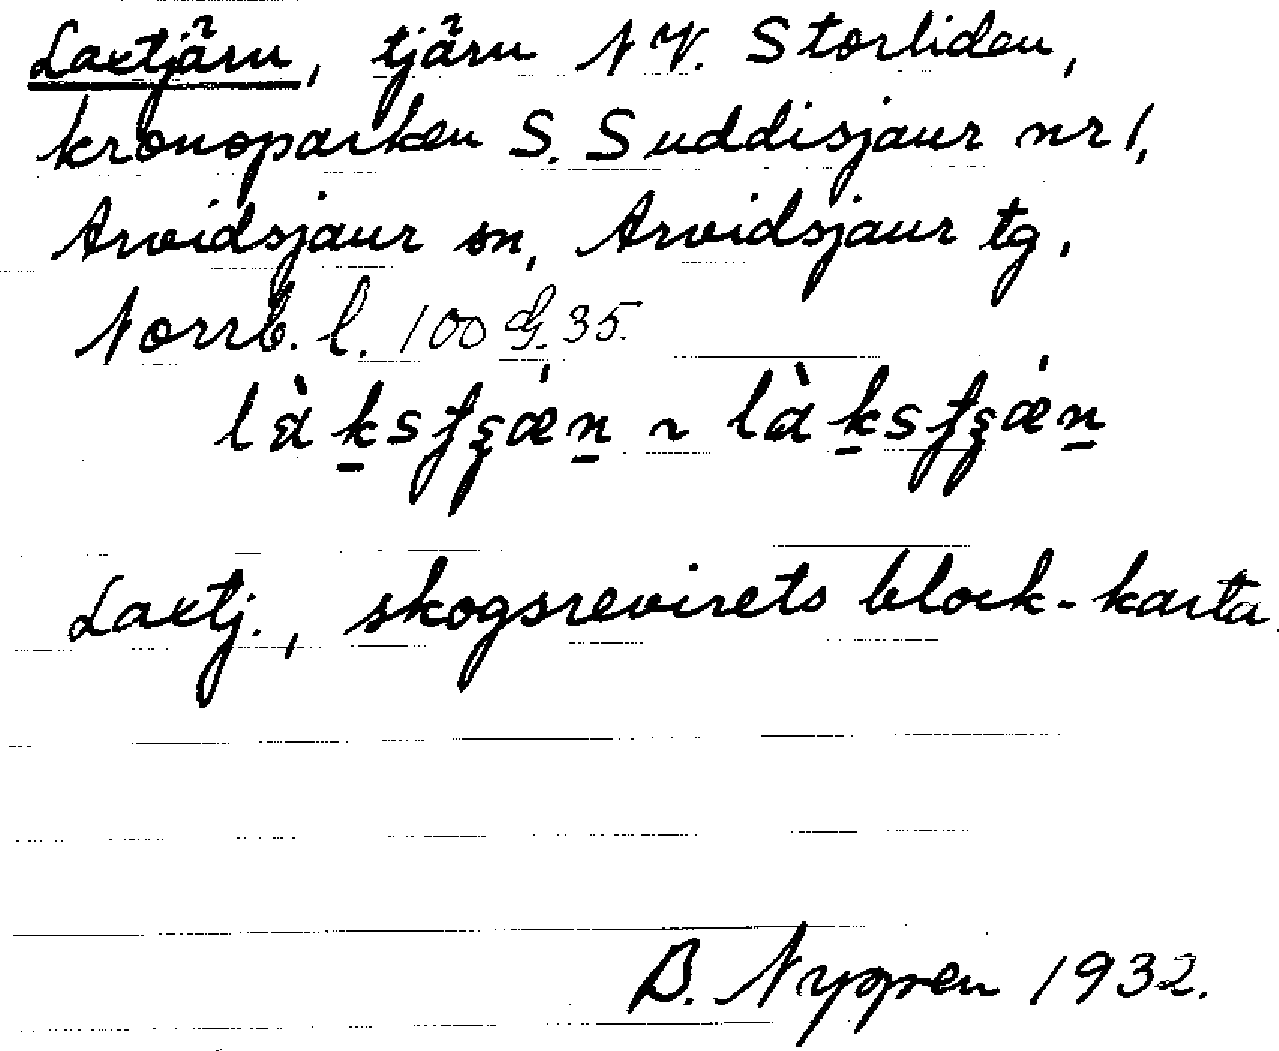 Laxtjärn, tjärn NV. Storliden,
kronoparken S. Suddisjaur nr 1,
Arvidsjaur sn, Arvidsjaur tg,
Norrb. l. 100 G. 35.
~
Laxtj., skogsrevirets block-karta.
B. Nyppen 1932.